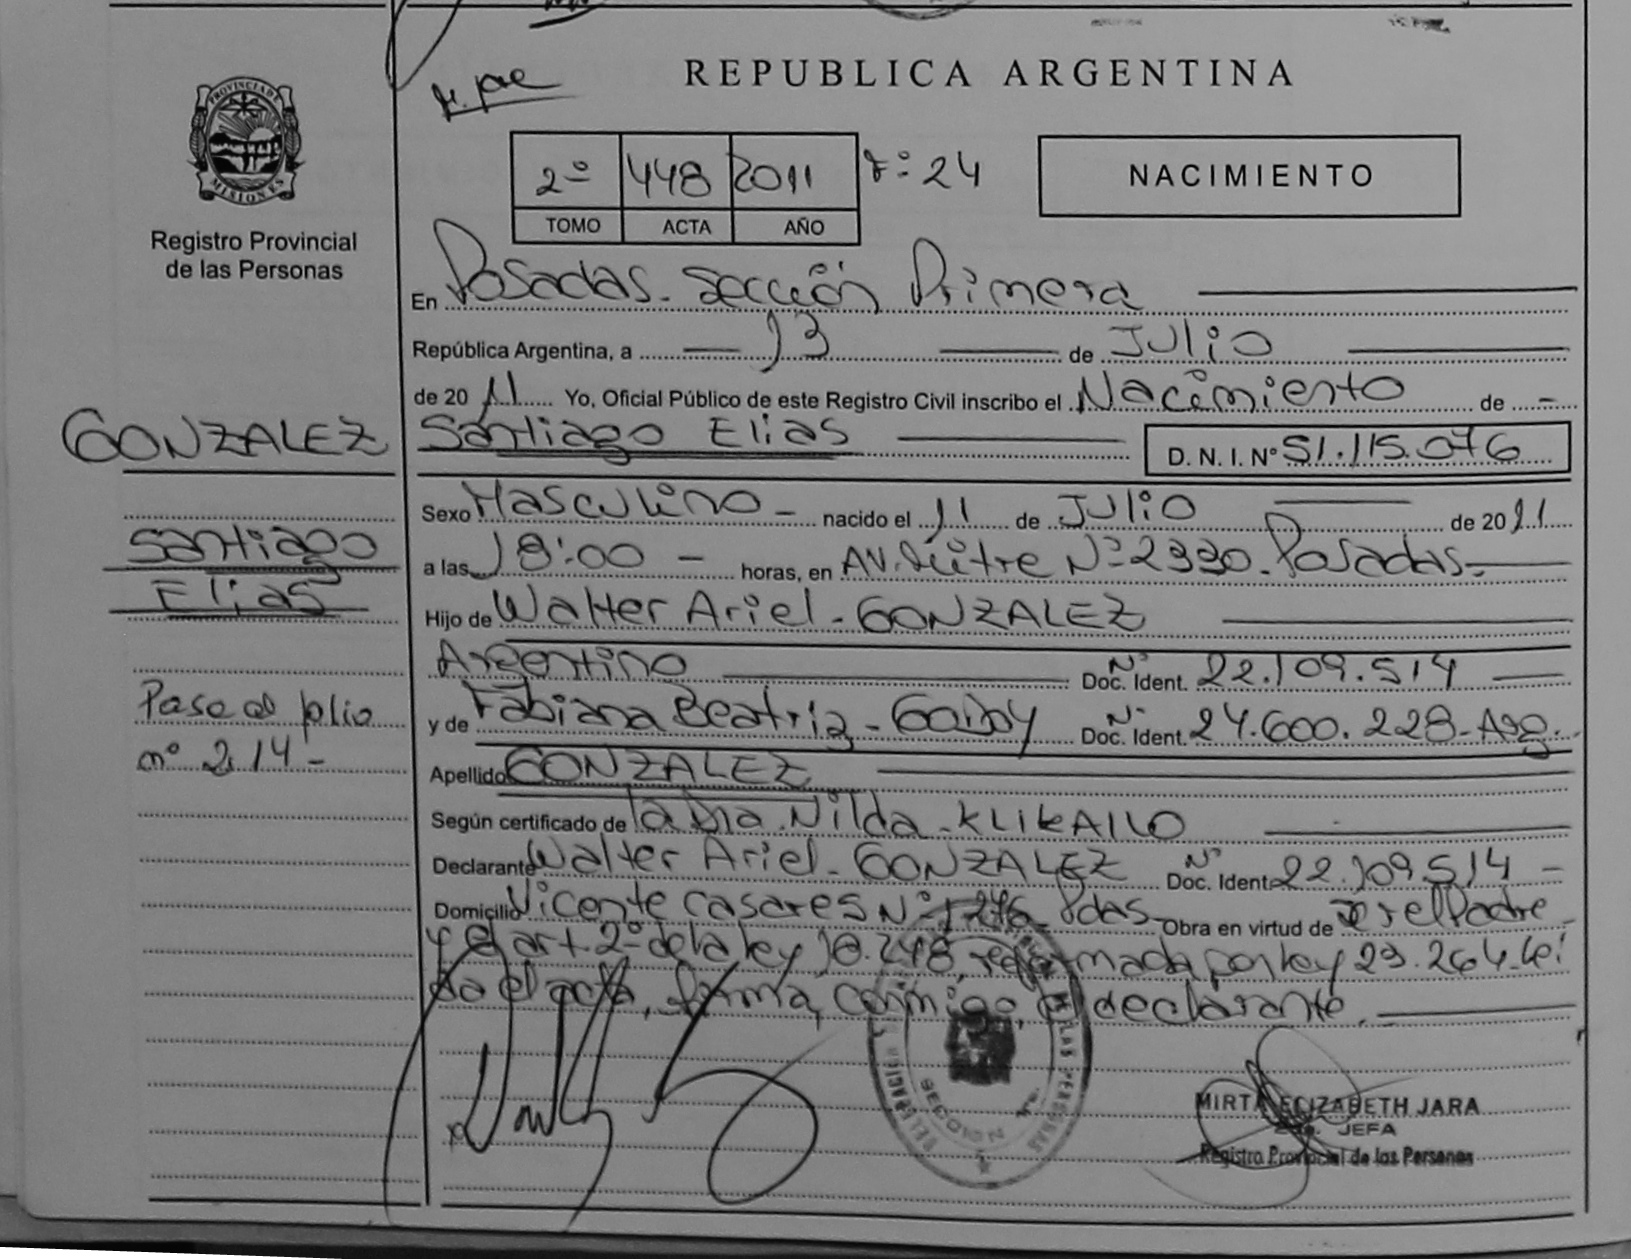 REPUBLICA ARGENTINA
PROVINCIA DE
MISIONES
Registro Provincial
de las Personas
2º 448 2011 Fº 24
TOMO ACTA AÑO
NACIMIENTO
En Posadas - Sección Primera
República Argentina, a 13 de Julio
de 2011 Yo, Oficial Público de este Registro Civil inscribo el Nacimiento de -
GONZALEZ Santiago Elias D. N. I. Nº 51.115.076
Sexo Masculino - nacido el 11 de Julio de 2011
Santiago
Elias
a las 18:00 - horas, en AV. Mitre Nº 2330 - Posadas -
Hijo de Walter Ariel - GONZALEZ
Argentino Nº Doc. Ident. 22.109.514
Pase al folio
nº 214 -
y de Fabiana Beatriz - Godoy Nº Doc. Ident. 24.600.228 - Arg.
Apellido GONZALEZ
Según certificado de la Dra. Nilda - KLIKAILO
Declarante Walter Ariel - GONZALEZ Nº Doc. Ident. 22.109.514 -
Domicilio Vicente Casares Nº 1276 - Pdas - Obra en virtud de ser el Padre
y el art. 2º de la ley 18.248, reformada por ley 23.264. Leí
do el acta, firma, conmigo, el declarante.
SECCION 1ra.
MIRTA ELIZABETH JARA
JEFA
Registro Provincial de las Personas